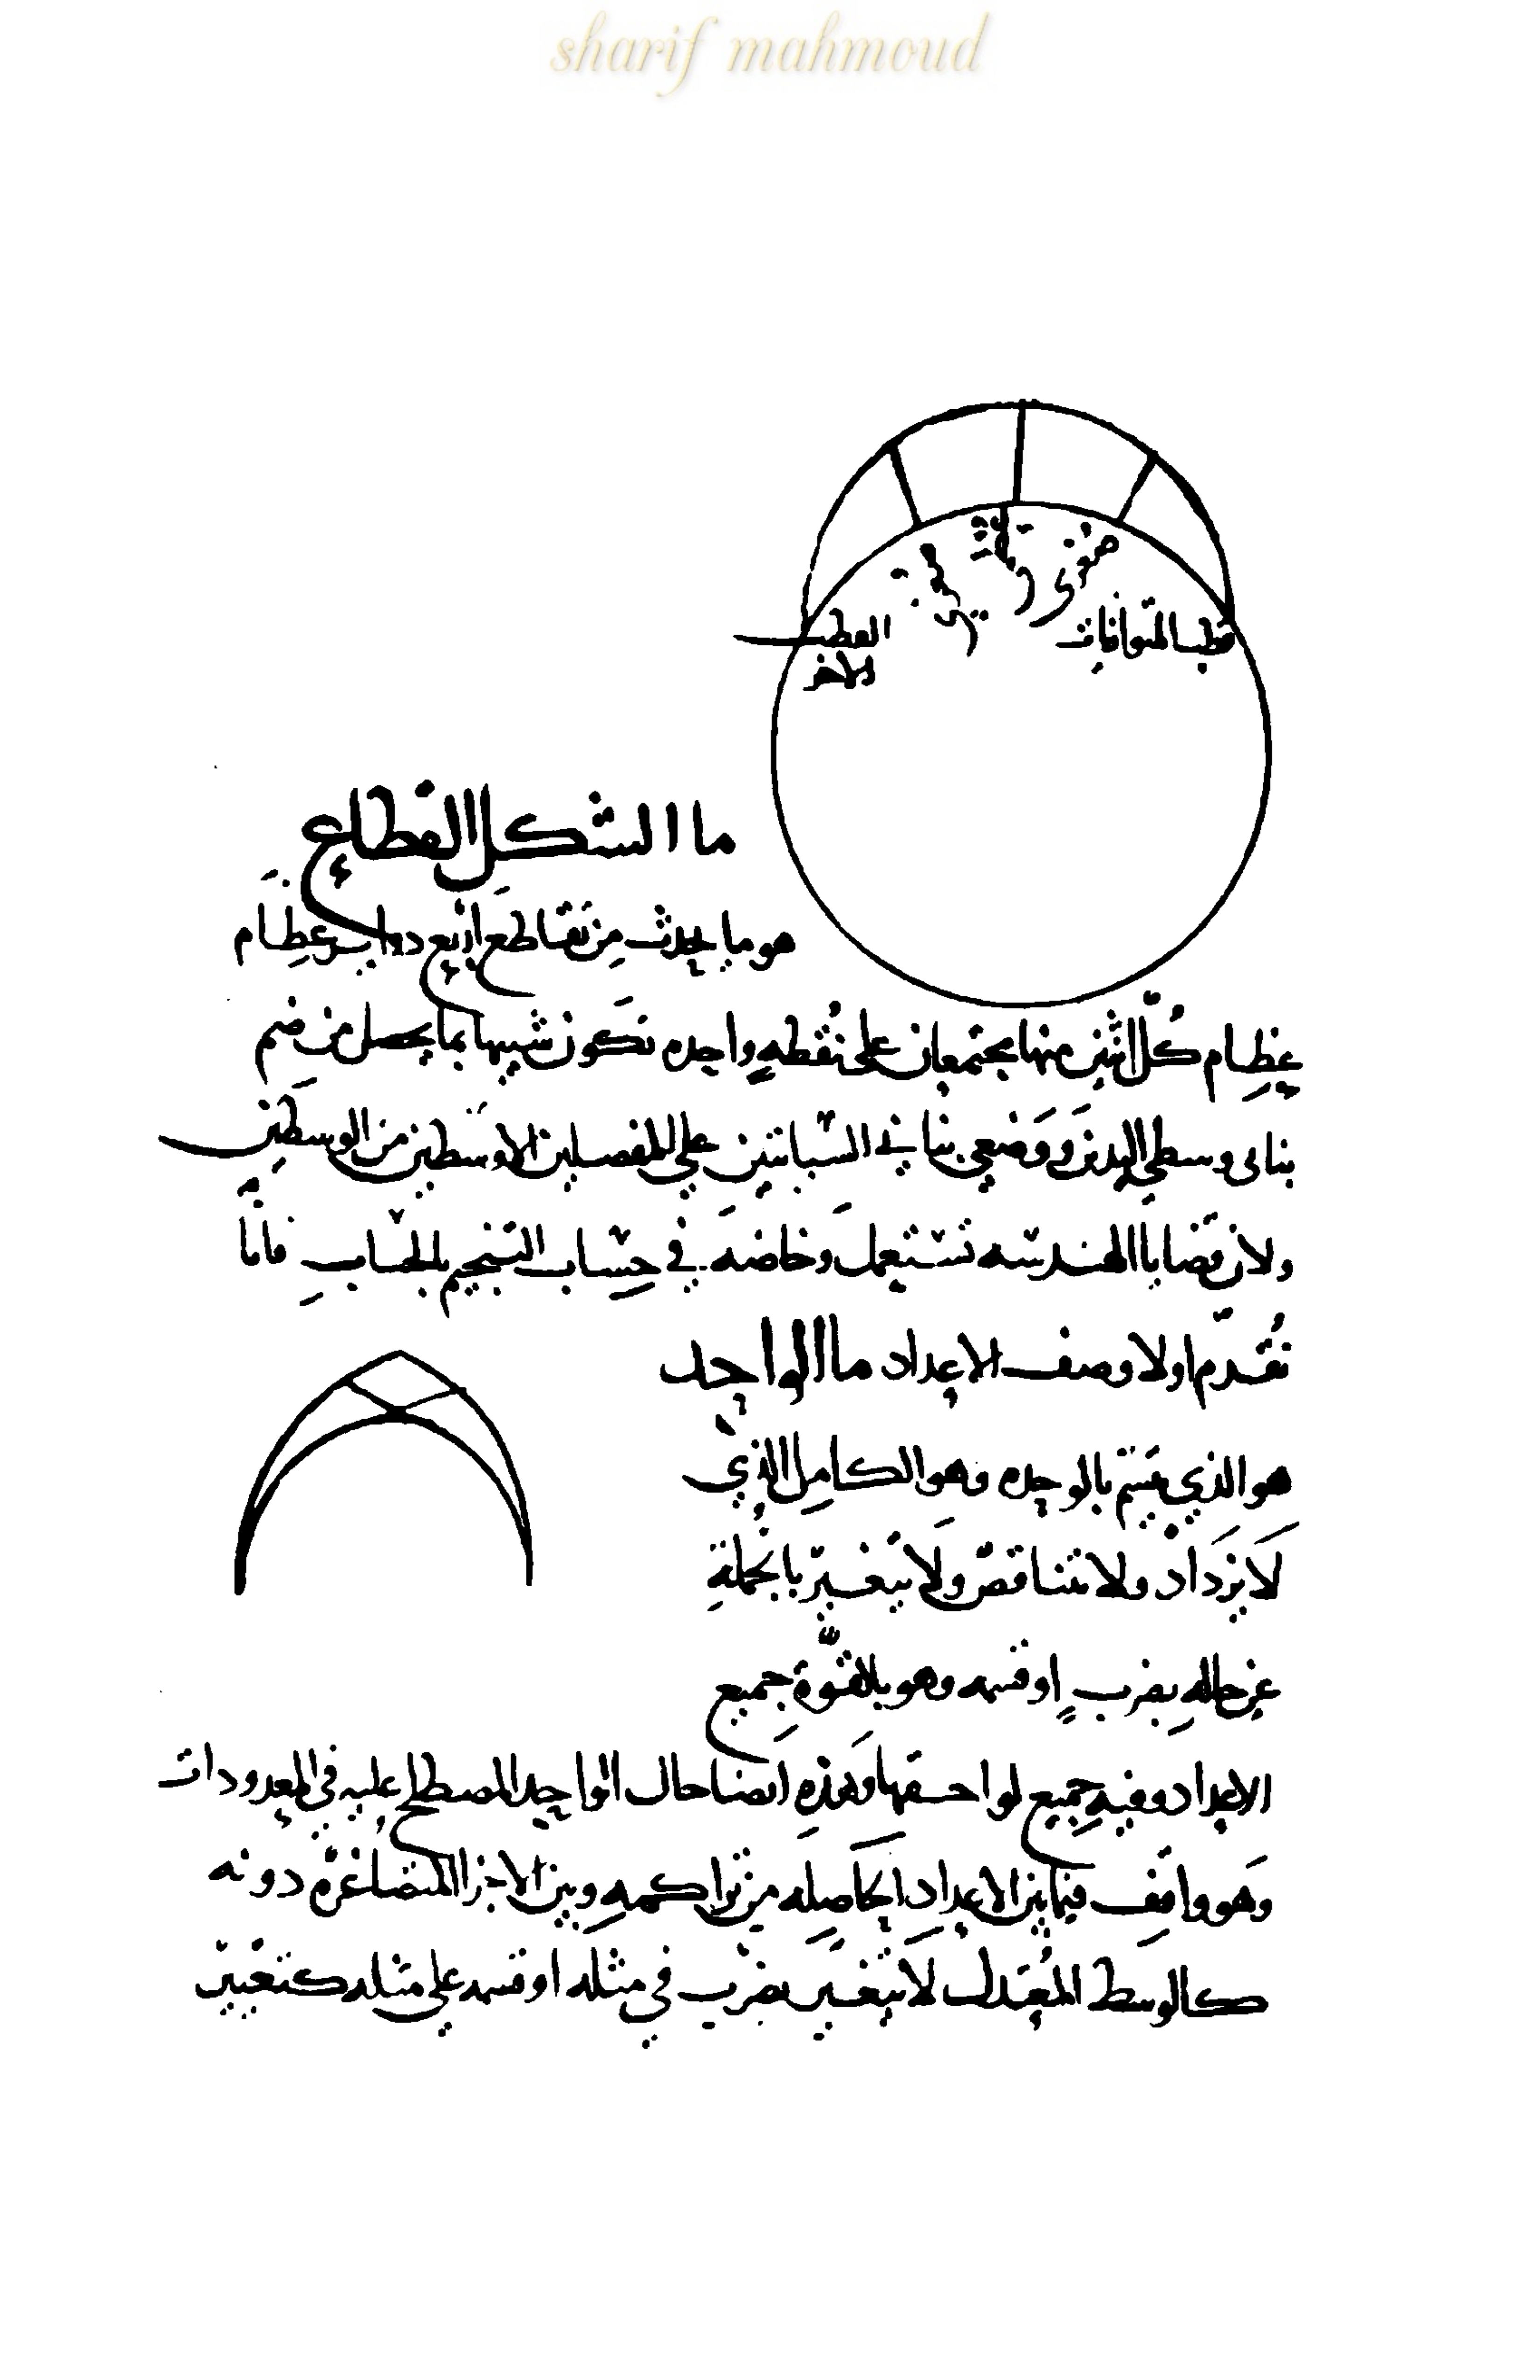 sharif mahmoud
قطب المتوافيات
القطب
الاخر
ما الشكل القطاع
هو ما يحدث من تقاطع اربع دواير عظام
عظام كل اثنين منها يجتمعان على نقطه واحده تكون شبيها بما يحصل من ضم
بناني وسطي اليدين ووضعي بناني السبابتين على المفصلين الاوسطين من الوسطين
ولان قضايا الهندسه تستعمل وخاصه في حساب التنجيم بالحساب فانا
نقدم اولا وصف الاعداد ما الواحد
هو الذي يتسم بالوحده وهو الكامل الذي
لا يزداد ولا يتناقص ولا يتغير بالجملة
عن حاله بضرب او قسمه وهو بالقوة جميع
الاعداد وفيه جميع لواحقها وهذه ايضا حال الواحد المصطلح عليه في المعدودات
وهو واقف فيما بين الاعداد الحاصله من تراكمه وبين الاجزا المتصاغره دونه
كالوسط المعتدل لا يتغير بضرب في مثله او قسمه على مثله كتغير